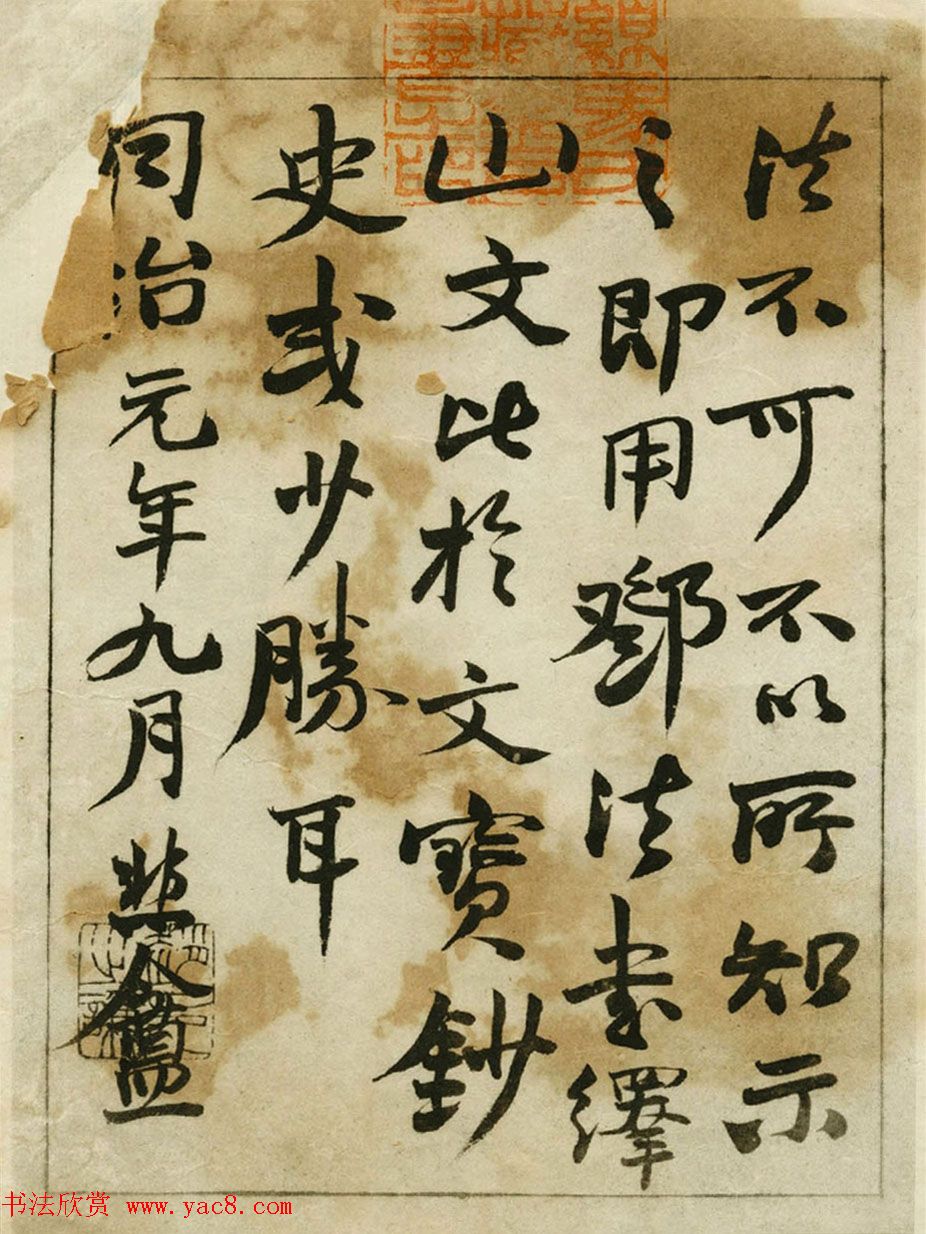 法不可不以所知示
之即用鄧法書繹
山文比於文寶鈔
史或少勝耳
同治元年九月悲盦
书法欣赏 www.yac8.com